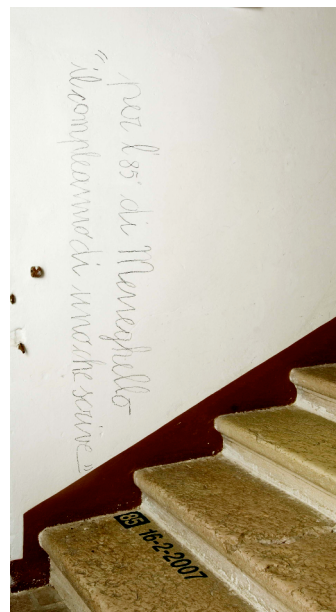 per l'85° di Meneghello
"il compleanno di uno che scrive"
85 16-2-2007